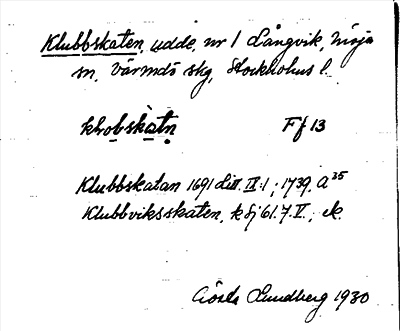 Klubbskaten, udde, nr 1 Långvik, Möja
sn, Värmdö skg, Stockholms l.
klobskatn Ff 13
Klubbskatan 1691 Litt. IX:1; 1739. A 35
Klubbviksskaten, k fj 61.7.V., ek.
Gösta Lundberg 1930